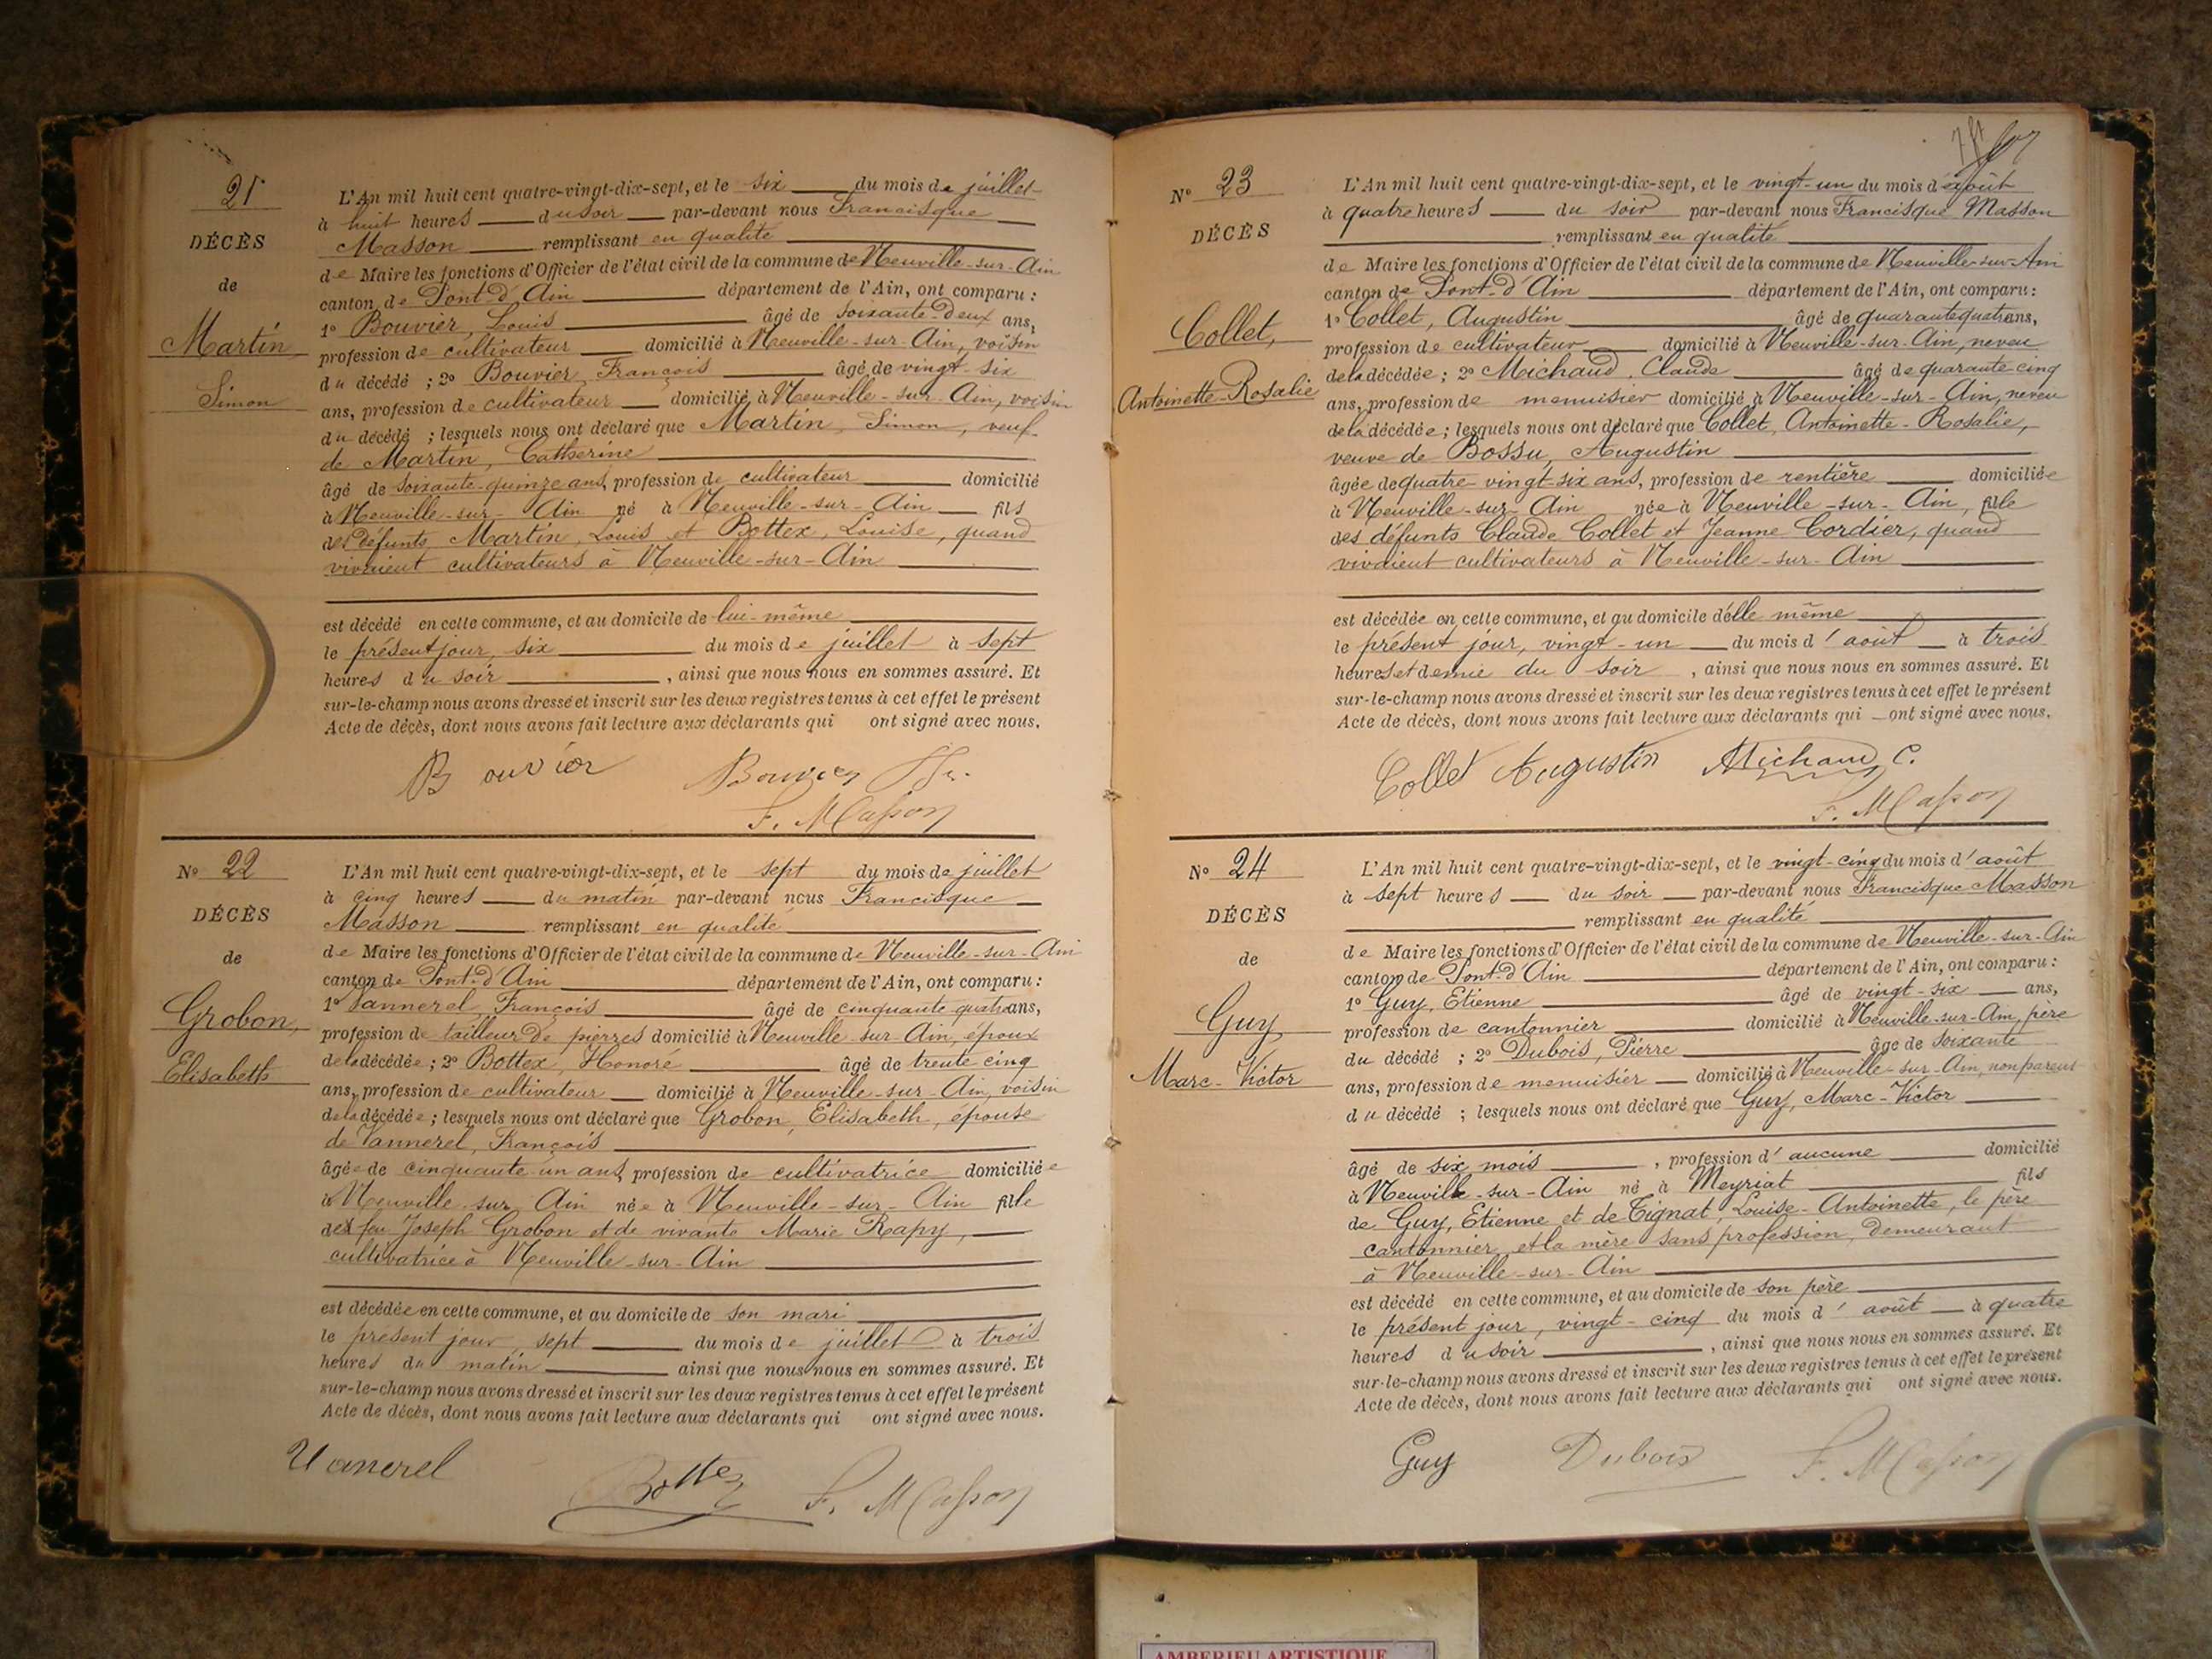 21
DÉCÈS
de
Martin
Simon
L'An mil huit cent quatre-vingt-dix-sept, et le six du mois de juillet
à huit heures du soir par-devant nous Francisque
Masson remplissant en qualité
de Maire les fonctions d'Officier de l'état civil de la commune de Neuville-sur-Ain
canton de Pont-d'Ain département de l'Ain, ont comparu :
1° Bouvier, Louis âgé de soixante-deux ans,
profession de cultivateur domicilié à Neuville-sur-Ain, voisin
du décédé ; 2° Bouvier, François âgé de vingt-six
ans, profession de cultivateur domicilié à Neuville-sur-Ain, voisin
du décédé ; lesquels nous ont déclaré que Martin, Simon, veuf
de Martin, Catherine
âgé de soixante-quinze ans, profession de cultivateur domicilié
à Neuville-sur-Ain né à Neuville-sur-Ain fils
des défunts Martin, Louis et Bottex, Louise, quand
vivaient cultivateurs à Neuville-sur-Ain
est décédé en cette commune, et au domicile de lui-même
le présent jour, six du mois de juillet à sept
heures du soir , ainsi que nous nous en sommes assuré. Et
sur-le-champ nous avons dressé et inscrit sur les deux registres tenus à cet effet le présent
Acte de décès, dont nous avons fait lecture aux déclarants qui ont signé avec nous.
Bouvier Bouvier
F. Masson
N° 22
DÉCÈS
de
Grobon,
Elisabeth
L'An mil huit cent quatre-vingt-dix-sept, et le sept du mois de juillet
à cinq heures du matin par-devant nous Francisque
Masson remplissant en qualité
de Maire les fonctions d'Officier de l'état civil de la commune de Neuville-sur-Ain
canton de Pont-d'Ain département de l'Ain, ont comparu :
1° Vannerel, François âgé de cinquante quatre ans,
profession de tailleur de pierres domicilié à Neuville-sur-Ain, époux
de la décédée ; 2° Bottex, Honoré âgé de trente cinq
ans, profession de cultivateur domicilié à Neuville-sur-Ain, voisin
de la décédée ; lesquels nous ont déclaré que Grobon, Elisabeth, épouse
de Vannerel, François
âgée de cinquante-un ans, profession de cultivatrice domiciliée
à Neuville-sur-Ain née à Neuville-sur-Ain fille
des feu Joseph Grobon et de vivante Marie Rapy,
cultivatrice à Neuville-sur-Ain
est décédée en cette commune, et au domicile de son mari
le présent jour, sept du mois de juillet à trois
heures du matin ainsi que nous nous en sommes assuré. Et
sur-le-champ nous avons dressé et inscrit sur les deux registres tenus à cet effet le présent
Acte de décès, dont nous avons fait lecture aux déclarants qui ont signé avec nous.
Vanerel Bottex F. Masson
N° 23
DÉCÈS
de
Collet,
Antoinette-Rosalie
L'An mil huit cent quatre-vingt-dix-sept, et le vingt-un du mois d'août
à quatre heures du soir par-devant nous Francisque Masson
remplissant en qualité
de Maire les fonctions d'Officier de l'état civil de la commune de Neuville-sur-Ain
canton de Pont-d'Ain département de l'Ain, ont comparu :
1° Collet, Augustin âgé de quarante quatre ans,
profession de cultivateur domicilié à Neuville-sur-Ain, neveu
de la décédée ; 2° Michaud, Claude âgé de quarante cinq
ans, profession de menuisier domicilié à Neuville-sur-Ain, neveu
de la décédée ; lesquels nous ont déclaré que Collet, Antoinette-Rosalie,
veuve de Bossu, Augustin
âgée de quatre vingt six ans, profession de rentière domiciliée
à Neuville-sur-Ain née à Neuville-sur-Ain, fille
des défunts Claude Collet et Jeanne Cordier, quand
vivaient cultivateurs à Neuville-sur-Ain
est décédée en cette commune, et au domicile d'elle même
le présent jour, vingt-un du mois d'août à trois
heures et demie du soir , ainsi que nous nous en sommes assuré. Et
sur-le-champ nous avons dressé et inscrit sur les deux registres tenus à cet effet le présent
Acte de décès, dont nous avons fait lecture aux déclarants qui ont signé avec nous.
Collet Augustin Michaud C.
F. Masson
N° 24
DÉCÈS
de
Guy
Marc-Victor
L'An mil huit cent quatre-vingt-dix-sept, et le vingt-cinq du mois d'août
à sept heures du soir par-devant nous Francisque Masson
remplissant en qualité
de Maire les fonctions d'Officier de l'état civil de la commune de Neuville-sur-Ain
canton de Pont-d'Ain département de l'Ain, ont comparu :
1° Guy, Etienne âgé de vingt-six ans,
profession de cantonnier domicilié à Neuville-sur-Ain, père
du décédé ; 2° Dubois, Pierre âgé de soixante
ans, profession de menuisier domicilié à Neuville-sur-Ain, non parent
du décédé ; lesquels nous ont déclaré que Guy, Marc-Victor
âgé de six mois , profession d'aucune domicilié
à Neuville-sur-Ain né à Meyriat fils
de Guy, Etienne et de Tignat, Louise-Antoinette, le père
cantonnier et la mère sans profession, demeurant
à Neuville-sur-Ain
est décédé en cette commune, et au domicile de son père
le présent jour, vingt-cinq du mois d'août à quatre
heures du soir , ainsi que nous nous en sommes assuré. Et
sur-le-champ nous avons dressé et inscrit sur les deux registres tenus à cet effet le présent
Acte de décès, dont nous avons fait lecture aux déclarants qui ont signé avec nous.
Guy Dubois F. Masson
AMBERIEU ARTISTIQUE